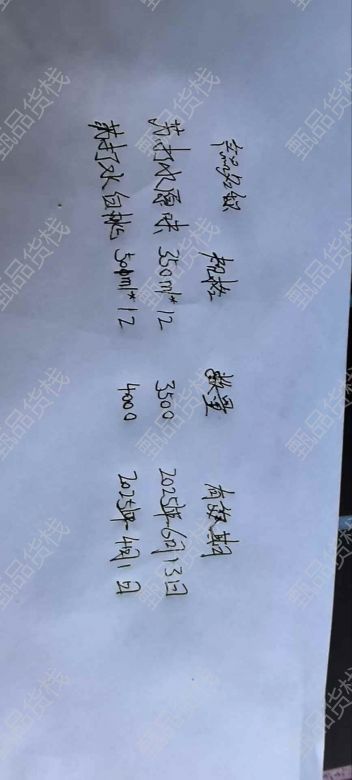 产品名称 规格 数量 有效期
苏打水原味 350ml*12 3500 2025年6月13日
苏打水白桃 500ml*12 4000 2025年4月1日
甄品货栈